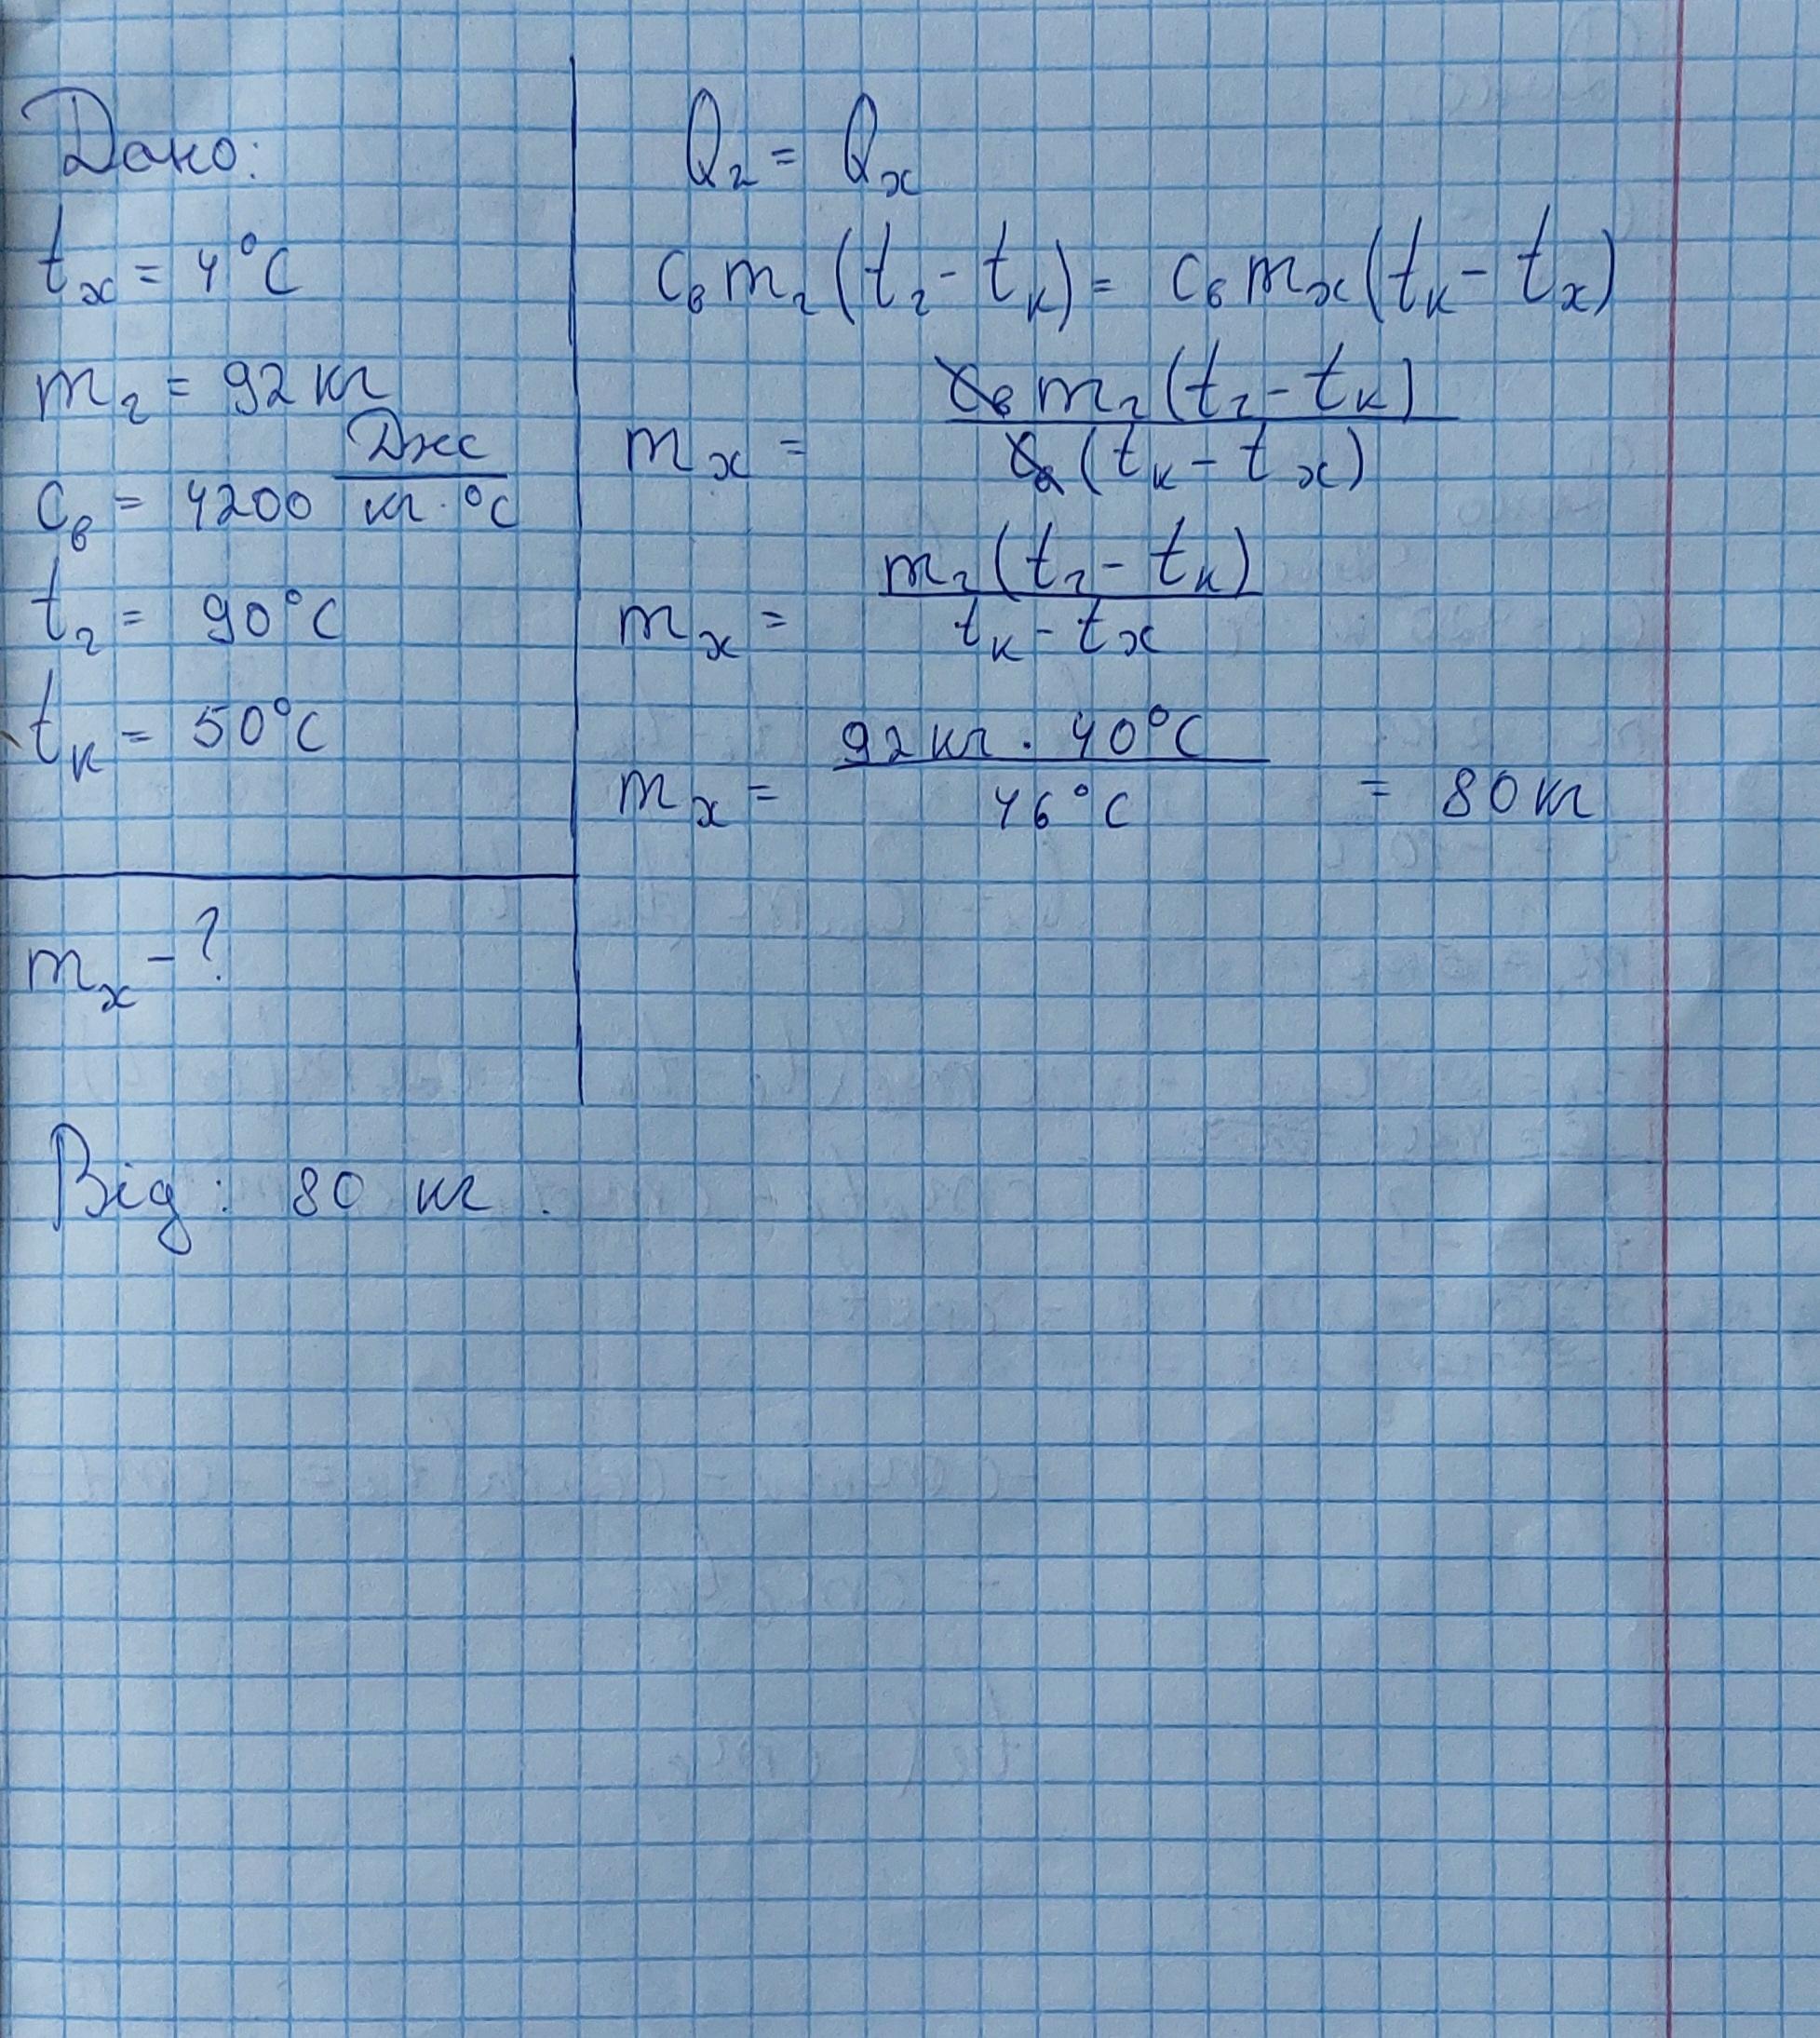 Дано:
tх = 4°C
mг = 92 кг
cв = 4200 Дж/кг·°C
tг = 90°C
tк = 50°C
mх - ?
Qг = Qх
cв mг (tг - tк) = cв mх (tк - tх)
mх = cв mг (tг - tк) / cв (tк - tх)
mх = mг (tг - tк) / tк - tх
mх = 92 кг · 40°C / 46°C = 80 кг
Від: 80 кг.